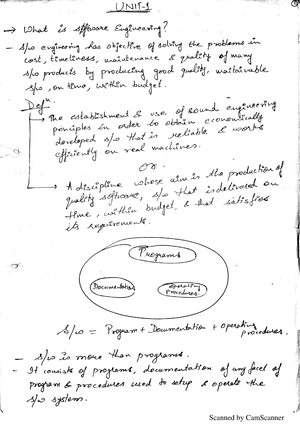 UNIT-1
→ What is software Engineering?
- s/w engineering has objective of solving the problems in
cost, timeliness, maintenance & quality of many
s/w products by producing good quality, maintainable
s/w, on time, within budget.
Defn.
→ The establishment & use of sound engineering
principles in order to obtain economically
developed s/w that is reliable & works
efficiently on real machines.
Or
→ A discipline whose aim is the production of
quality software, s/w that is delivered on
time, within budget, & that satisfies
its requirements.
Programs
Documentation
Operating
Procedures
S/w = Program + Documentation + Operating
procedures.
- s/w is more than programs.
- It consists of programs, documentation of any facet of
program & procedures used to setup & operate the
s/w system.
Scanned by CamScanner